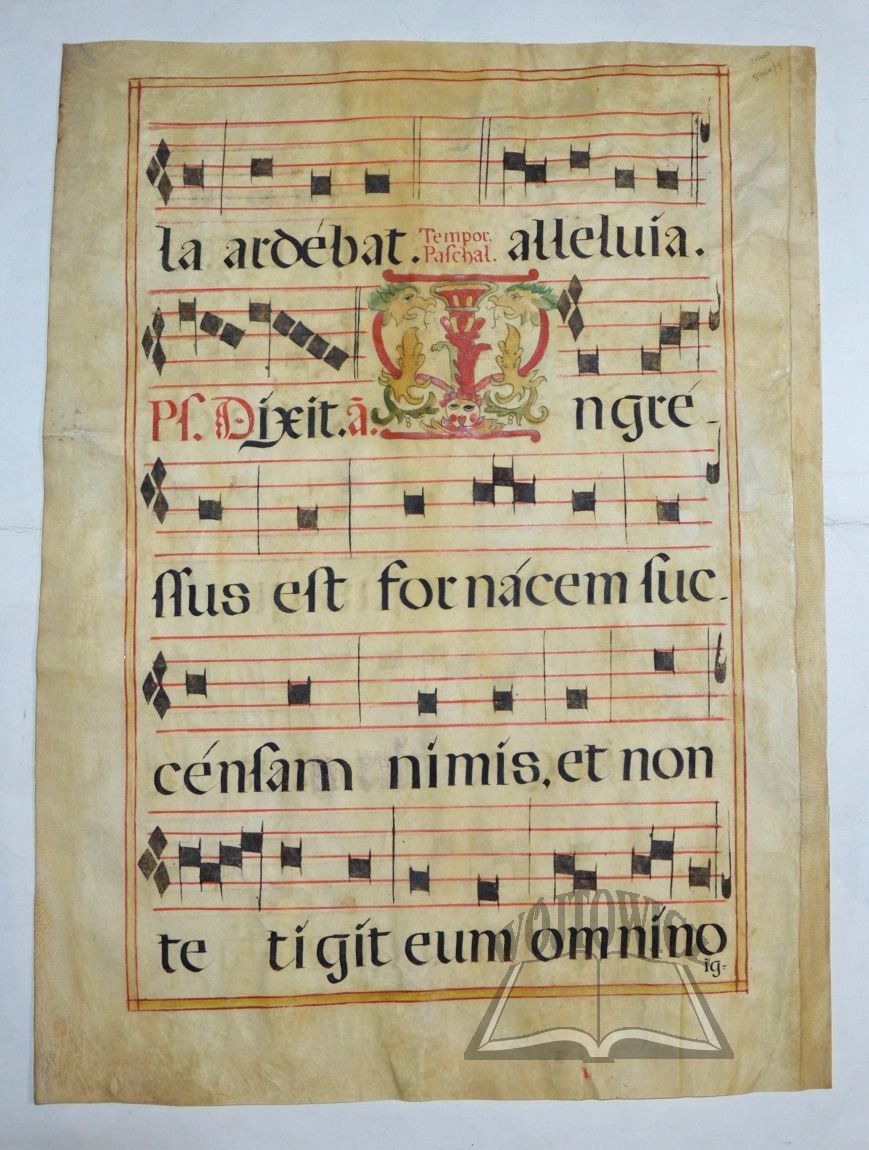 la ardébat. Tempor. Paſchal. alleluia.
Pſ. Dixit. ā. I ngré-
ſſus eſt fornácem ſuc-
cénſam nimis, et non
te tigit eum omníno
ig-
WÓJTOWICZ